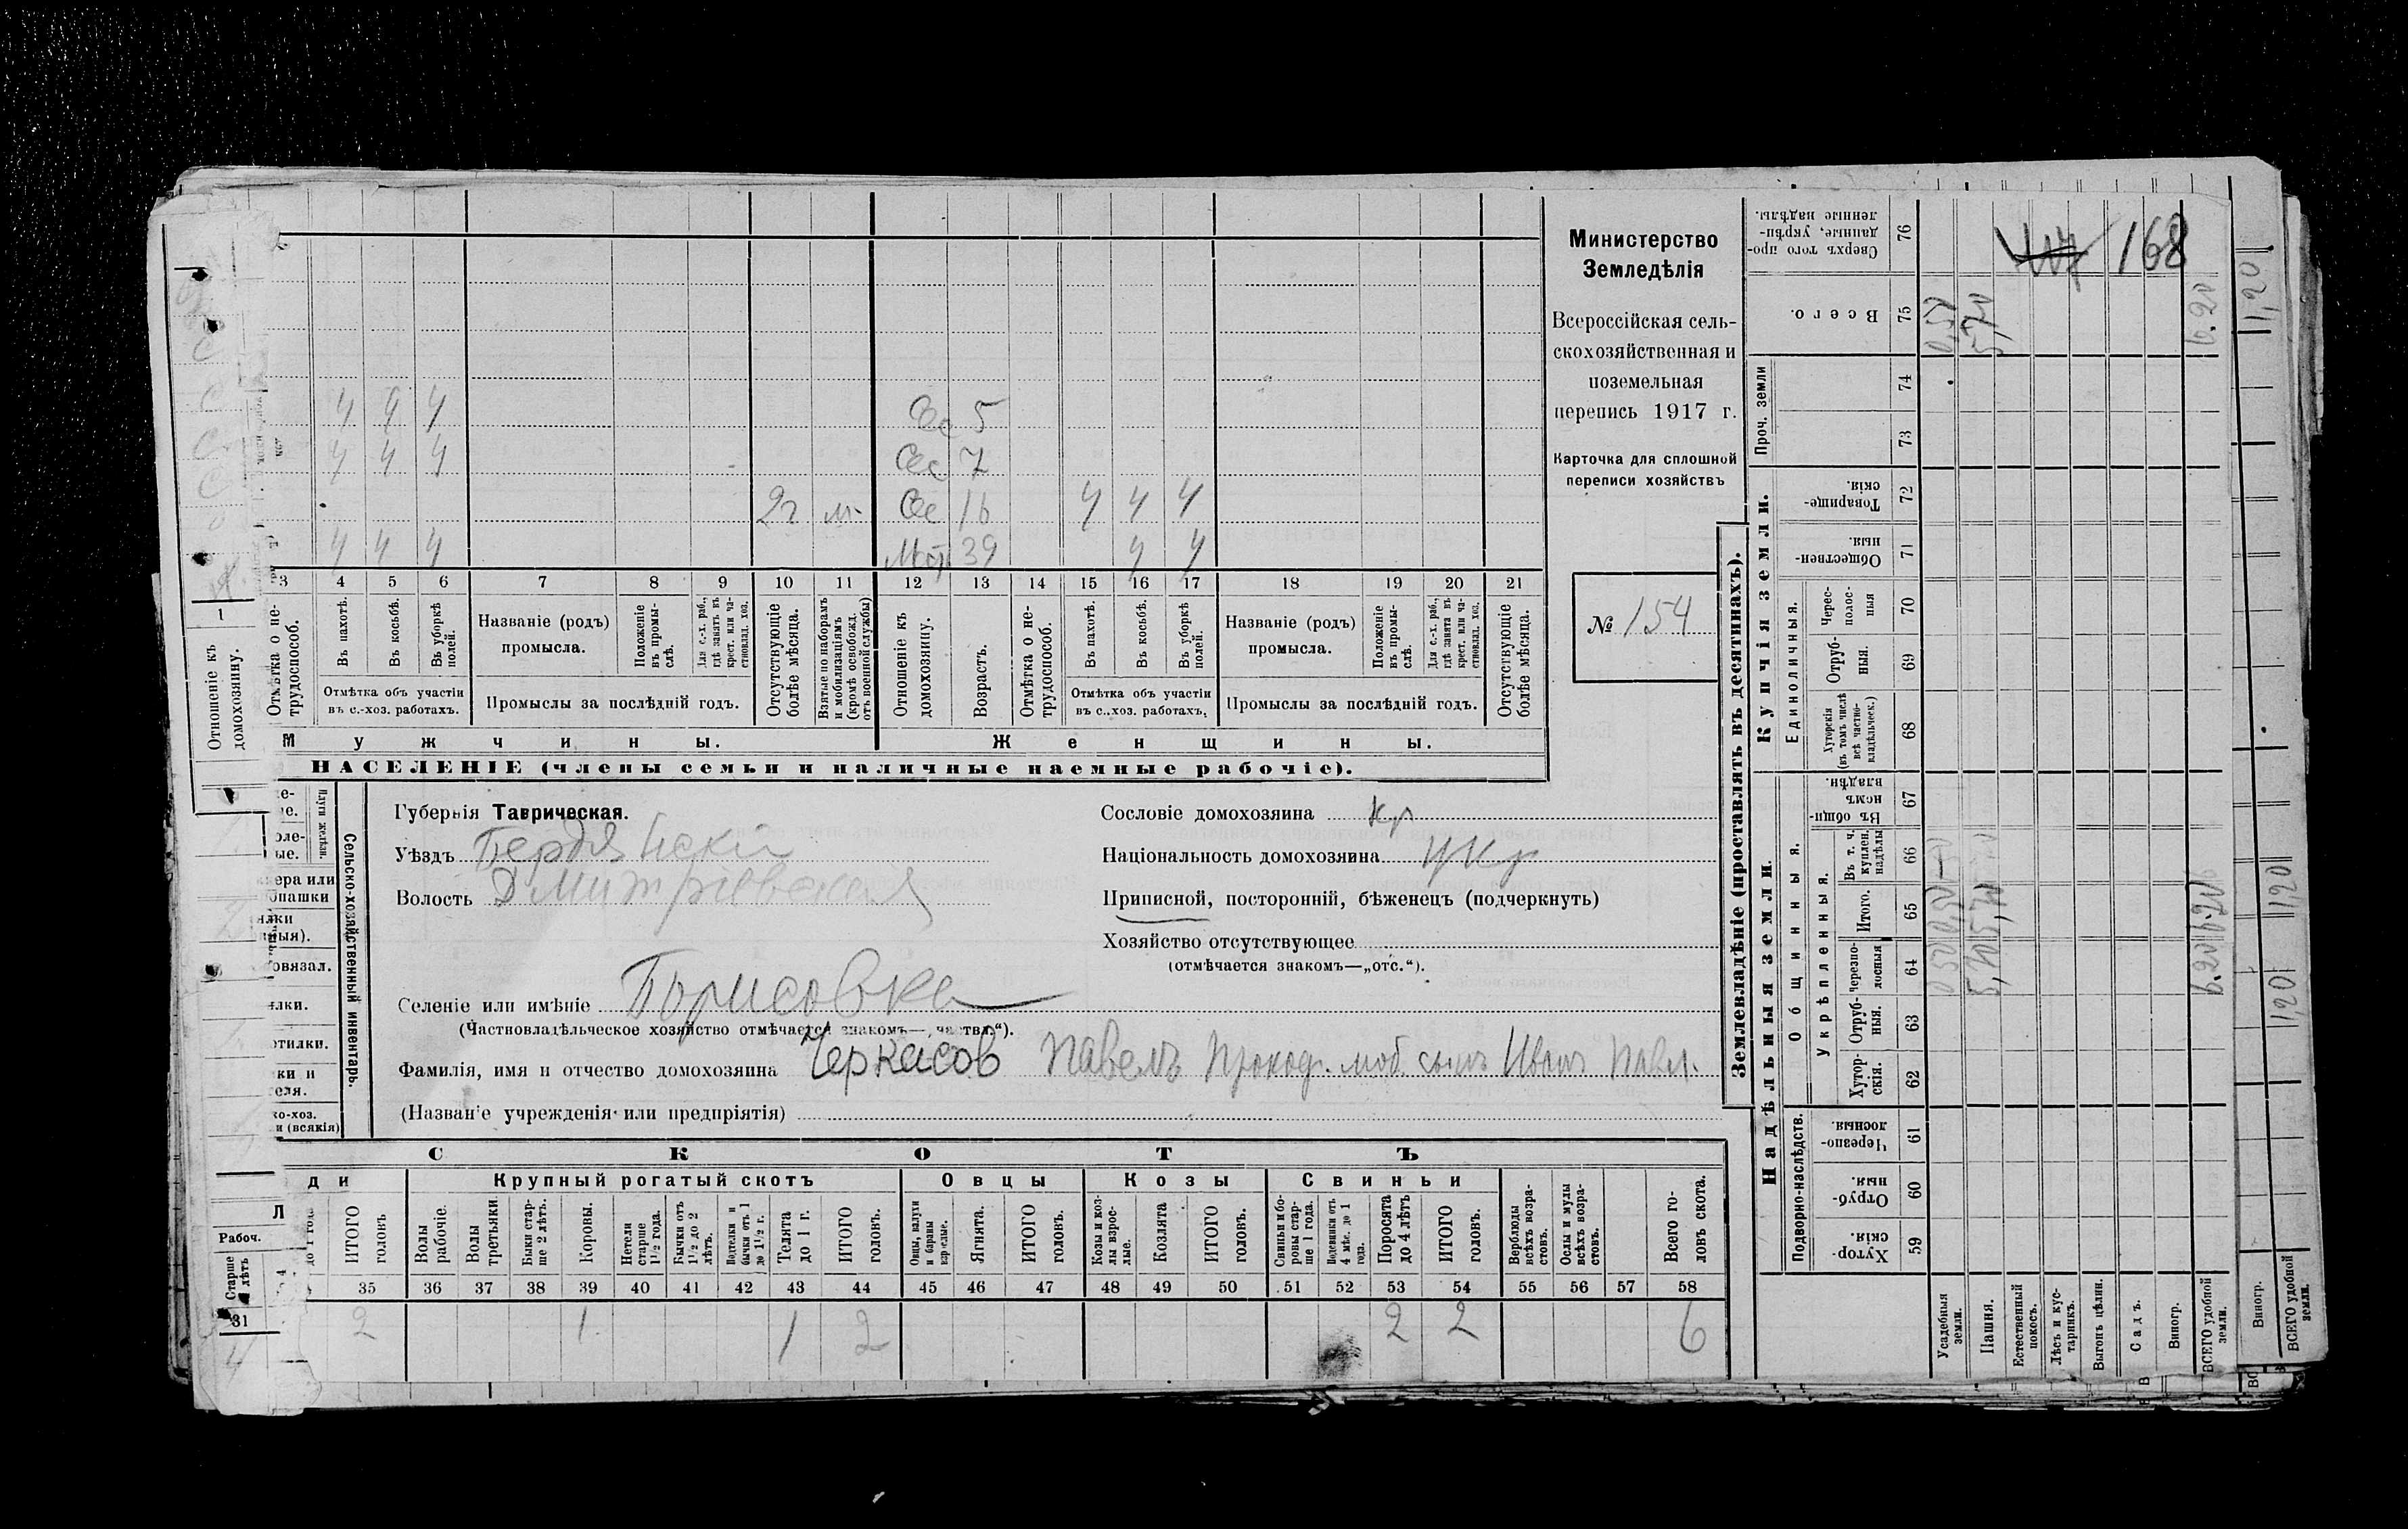 4 4 4 Се 5
4 4 4 Се 7
2 г м. Се 16 4 4 4
4 4 4 Мат 39 4 4
1 3 4 5 6 7 8 9 10 11 12 13 14 15 16 17 18 19 20 21
Отношеніе къ домохозяину.
Отмѣтка о не-трудоспособ.
Въ пахотѣ.
Въ косьбѣ.
Въ уборкѣ полей.
Отмѣтка объ участіи въ с.-хоз. работахъ.
Названіе (родъ) промысла.
Положеніе въ промы-слѣ.
Для с.-х. раб., гдѣ занятъ въ крест. или ча-ствовлад. хоз.
Промыслы за послѣдній годъ.
Отсутствующіе болѣе мѣсяца.
Взятые по наборамъ и мобилизаціямъ (кромѣ освобожд. отъ военной службы)
Отношеніе къ домохозяину.
Возрастъ.
Отмѣтка о не-трудоспособ.
Въ пахотѣ.
Въ косьбѣ.
Въ уборкѣ полей.
Отмѣтка объ участіи въ с.-хоз. работахъ,
Названіе (родъ) промысла.
Положеніе въ промы-слѣ.
Для с.-х. раб., гдѣ занята въ крест. или ча-ствовлад. хоз.
Промыслы за послѣдній годъ.
Отсутствующіе болѣе мѣсяца.
Мужчины. Женщины.
НАСЕЛЕНІЕ (члены семьи и наличные наемные рабочіе).
Министерство
Земледѣлія
Всероссійская сель-
скохозяйственная и
поземельная
перепись 1917 г.
Карточка для сплошной
переписи хозяйствъ
№ 154
Сельско-хозяйственный инвентарь.
Губернія Таврическая.
Уѣздъ Бердянскій
Волость Дмитріевская
Селеніе или имѣніе Борисовка
(Частновладѣльческое хозяйство отмѣчается знакомъ—„частвл.“).
Фамилія, имя и отчество домохозяина Черкасов Павелъ Прокоф. моб. сынъ Иванъ Павл.
(Названіе учрежденія или предпріятія)
Сословіе домохозяина кр
Національность домохозяина укр
Приписной, посторонній, бѣженецъ (подчеркнуть)
Хозяйство отсутствующее
(отмѣчается знакомъ—„отс.“).
СКОТЪ
Крупный рогатый скотъ Овцы Козы Свиньи
Рабоч.
ИТОГО головъ
Волы рабочіе.
Волы третьяки
Быки стар-ше 2 лѣтъ.
Коровы.
Нетели старше 1½ года.
Бычки отъ 1½ до 2 лѣтъ.
Подтелки и бычки отъ 1 до 1½ г.
Телята до 1 г.
ИТОГО головъ.
Овцы, валухи и бараны взрослые.
Ягнята.
ИТОГО головъ.
Козы и коз-лы взрос-лые.
Козлята
ИТОГО головъ.
Свиньи и бо-ровы стар-ше 1 года.
Подсвинки отъ 4 мѣс. до 1 года.
Поросята до 4 лѣтъ
ИТОГО головъ.
Верблюды всѣхъ возра-стовъ.
Ослы и мулы всѣхъ возра-стовъ.
Всего го-ловъ скота.
31 35 36 37 38 39 40 41 42 43 44 45 46 47 48 49 50 51 52 53 54 55 56 57 58
2 1 1 2 2 2 6
Землевладѣніе (проставлять въ десятинахъ).
Надѣльныя земли.
Купчія земли.
Проч. земли
Подворно-наслѣдств.
Общинныя.
Укрѣпленныя.
Единоличныя.
Хутор-скія. 59
Отруб-ныя. 60
Черезпо-лосныя. 61
Хутор-скія. 62
Отруб-ныя. 63
Черезпо-лосныя 64
Итого. 65
Въ т. ч. куплен. надѣлы 66
Въ общин-номъ владѣн. 67
Хуторскія (въ томъ числѣ всѣ частно-владѣльческ.) 68
Отруб-ныя. 69
Черес-полос-ныя 70
Обществен-ныя. 71
Товарище-скія. 72
73
74
Всего. 75
Сверхъ того про-данные, укрѣп-ленные надѣлы. 76
168
Усадебныя земли. 0,50 0,50 0,50
Пашня. 5,70 5,70 5,70
Естественный покосъ.
Лѣсъ и кус-тарникъ.
Выгонъ цѣлин.
Садъ.
Виногр.
ВСЕГО удобной земли. 6,20 6,20 6,20
Виногр.
ВСЕГО удобной земли. 1,20 1,20 1,20